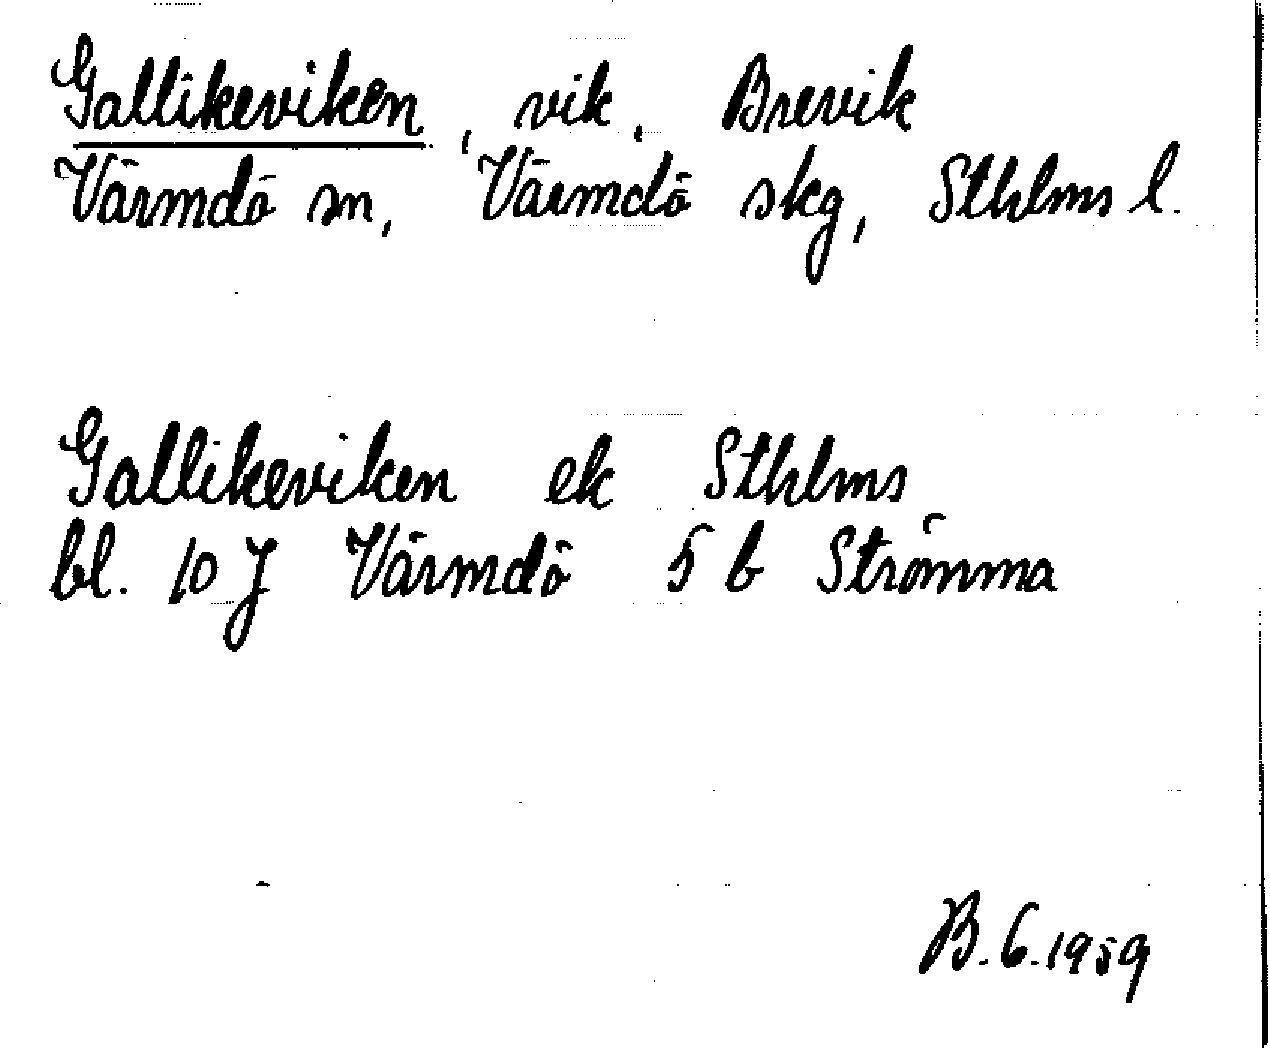 Gallikeviken, vik, Brevik
Värmdö sn, Värmdö skg, Sthlms l.
Gallikeviken ek Sthlms
bl. 10 J Värmdö 5 b Strömma
B.6.1959